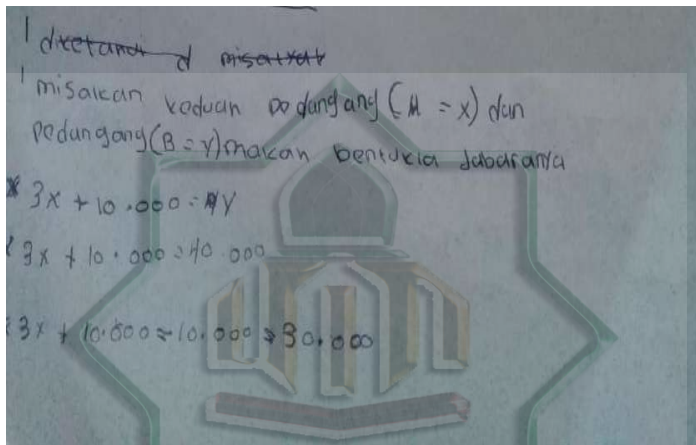 1 diketandi d misalkan
1 misalkan keduan pedangang (A = x) dan
pedangang (B = y) makan bentukla Jabaranya
* 3x + 10.000 = 4y
* 3x + 10.000 = 40.000
* 3x + 10.000 = 10.000 = 30.000